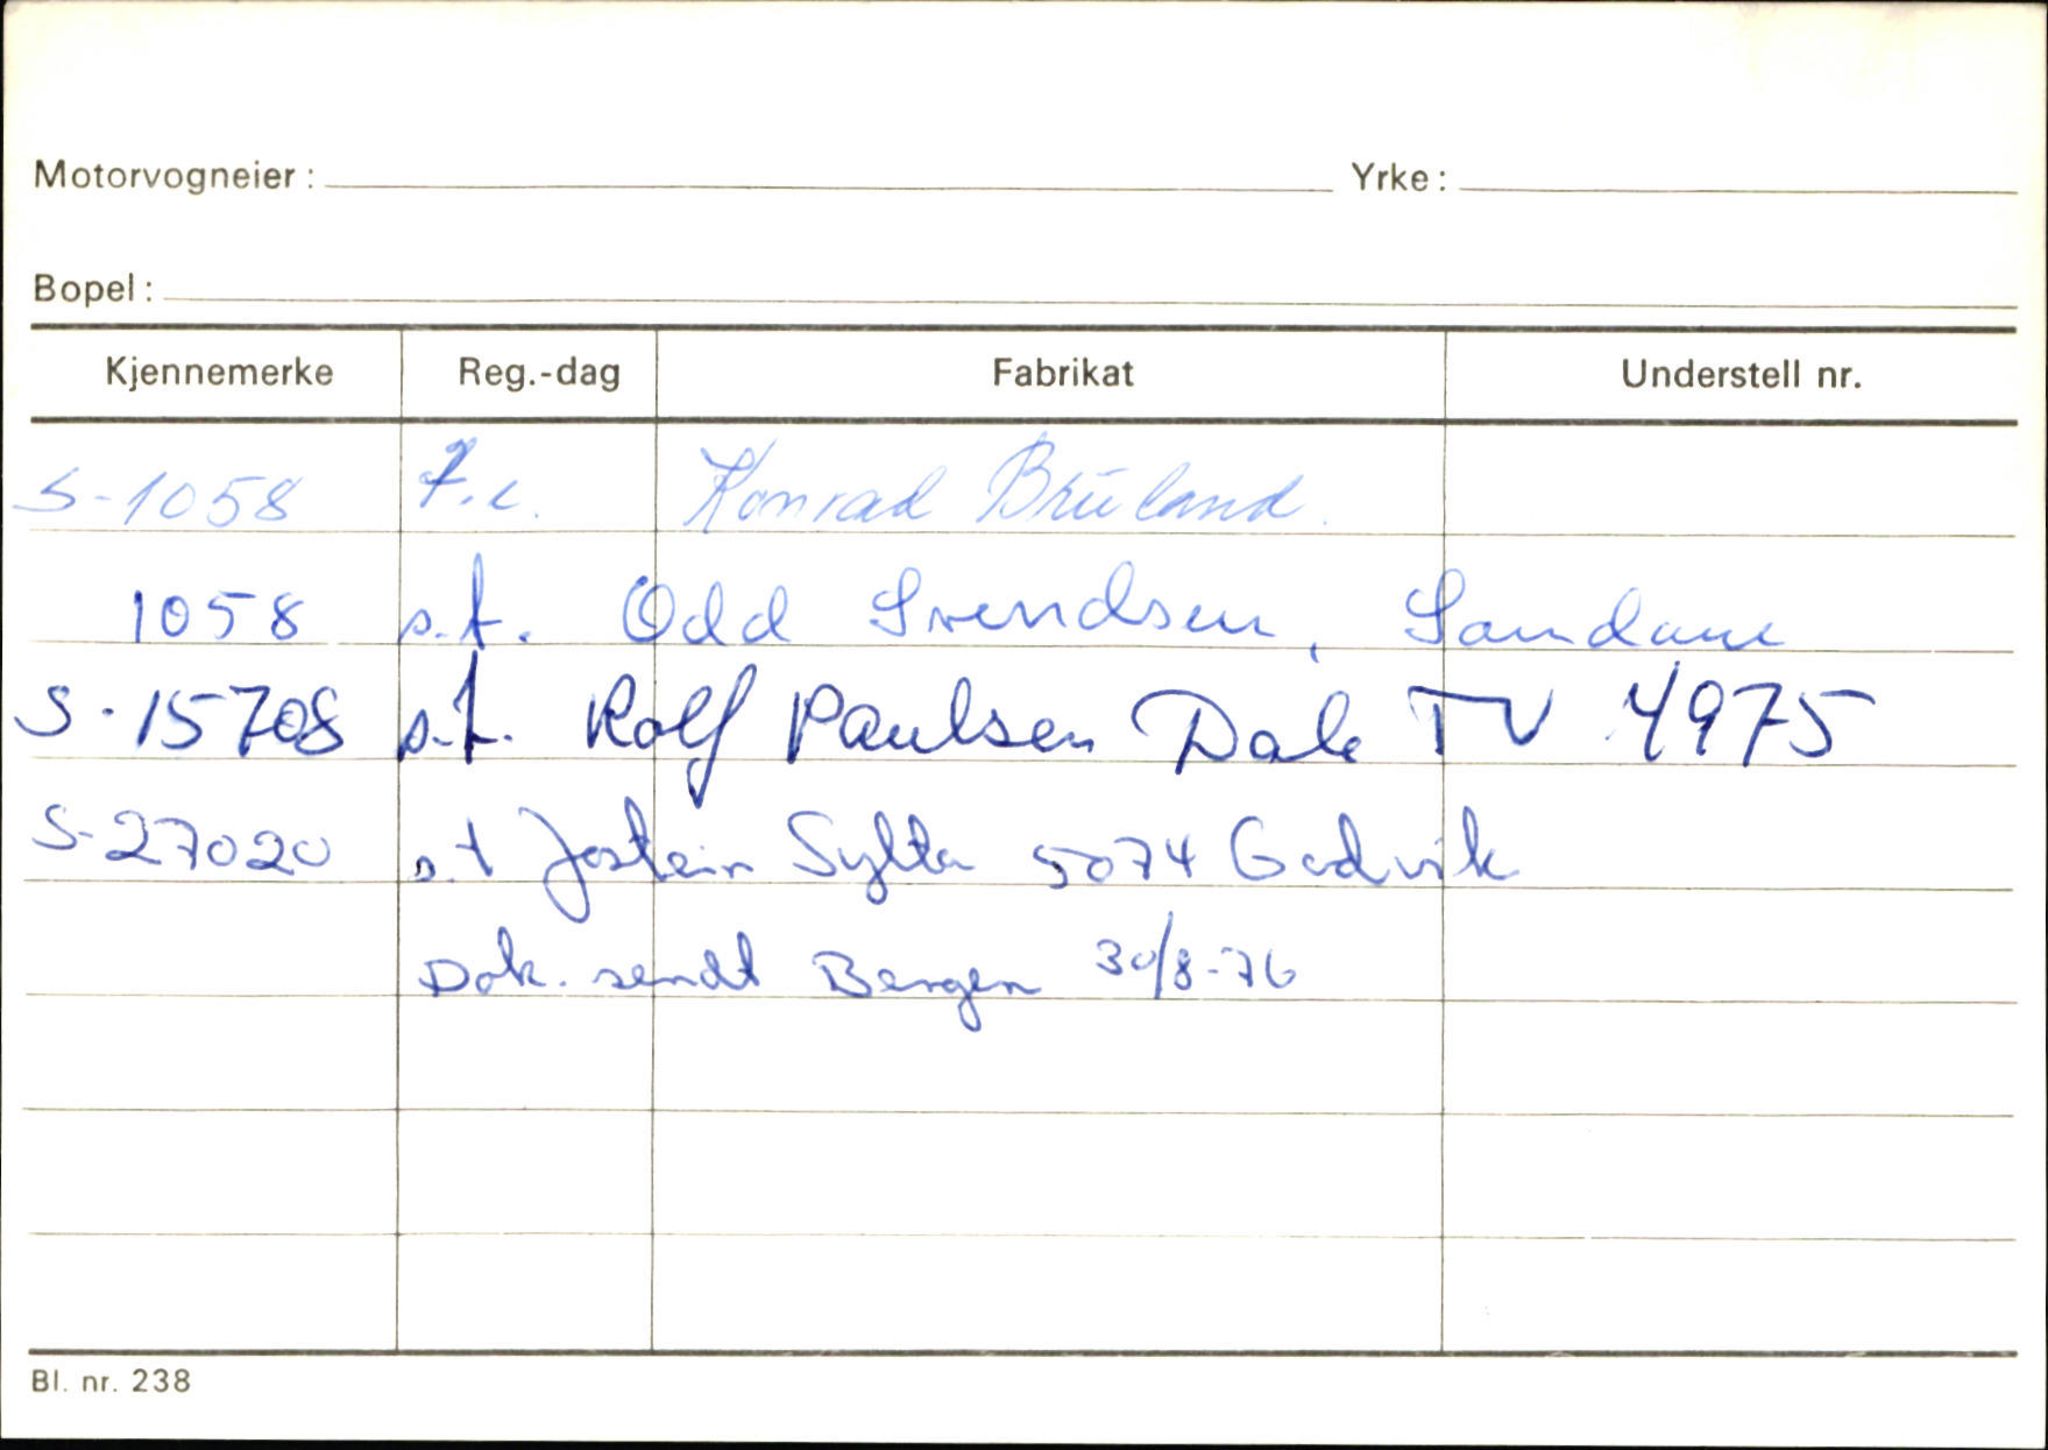 Motorvogneier: Yrke:
Bopel:
Kjennemerke Reg.-dag Fabrikat Understell nr.
S-1058 Konrad Bruland.
1058 s.t. Odd Svendsen, Sandane
S-15708 s.t. Rolf Paulsen Dale TV 4975
S-27020 s.t Jostein Sylta 5074 Godvik
Dok. sendt Bergen 30/8-76
Bl. nr. 238